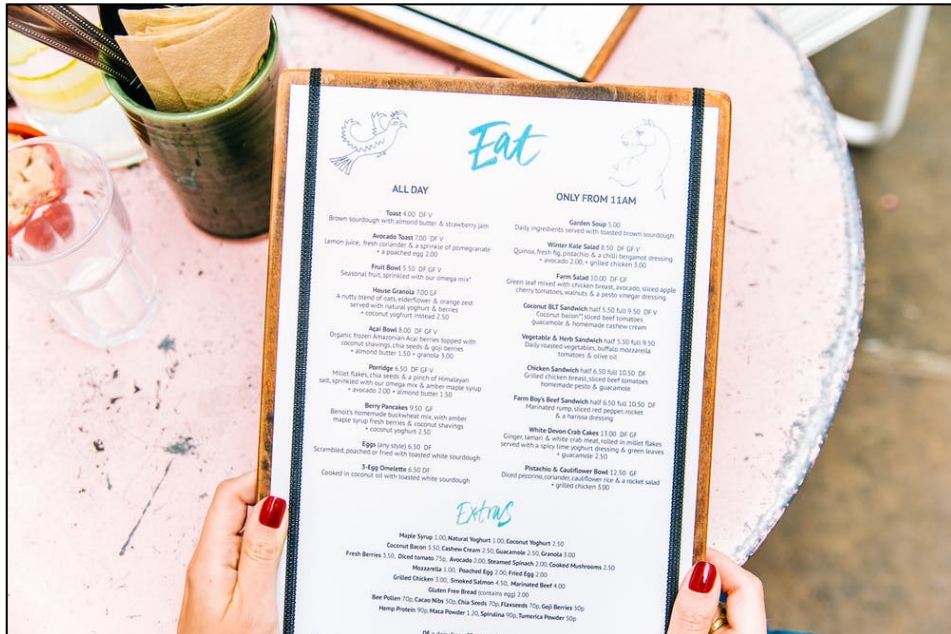 Eat
ALL DAY
Toast 4.00 DF V
Brown sourdough with almond butter & strawberry jam
Avocado Toast 7.00 DF V
Lemon juice, fresh coriander & a sprinkle of pomegranate
+ a poached egg 2.00
Fruit Bowl 5.50 DF GF V
Seasonal fruit, sprinkled with our omega mix*
House Granola 7.00 GF
A nutty blend of oats, elderflower & orange zest
served with natural yoghurt & berries
+ coconut yoghurt instead 2.50
Açai Bowl 8.00 DF GF V
Organic frozen Amazonian Acai berries topped with
coconut shavings, chia seeds & goji berries
+ almond butter 1.50 + granola 3.00
Porridge 6.50 DF GF V
Millet flakes, chia seeds & a pinch of Himalayan
salt, sprinkled with our omega mix & amber maple syrup
+ avocado 2.00 + almond butter 1.50
Berry Pancakes 9.50 GF
Benoit's homemade buckwheat mix, with amber
maple syrup fresh berries & coconut shavings
+ coconut yoghurt 2.50
Eggs (any style) 6.50 DF
Scrambled, poached or fried with toasted white sourdough
3-Egg Omelette 6.50 DF
Cooked in coconut oil with toasted white sourdough
ONLY FROM 11AM
Garden Soup 5.00
Daily ingredients served with toasted brown sourdough
Winter Kale Salad 8.50 DF GF V
Quinoa, fresh fig, pistachio & a chilli bergamot dressing
+ avocado 2.00, + grilled chicken 3.00
Farm Salad 10.00 DF GF
Green leaf mixed with chicken breast, avocado, sliced apple
cherry tomatoes, walnuts & a pesto vinegar dressing
Coconut BLT Sandwich half 5.50 full 9.50 DF V
Coconut bacon™, sliced beef tomatoes
guacamole & homemade cashew cream
Vegetable & Herb Sandwich half 5.50 full 9.50
Daily roasted vegetables, buffalo mozzarella
tomatoes & olive oil
Chicken Sandwich half 6.50 full 10.50 DF
Grilled chicken breast, sliced beef tomatoes
homemade pesto & guacamole
Farm Boy's Beef Sandwich half 6.50 full 10.50 DF
Marinated rump, sliced red pepper, rocket
& a harissa dressing
White Devon Crab Cakes 13.00 DF GF
Ginger, tamari & white crab meat, rolled in millet flakes
served with a spicy lime yoghurt dressing & green leaves
+ guacamole 2.50
Pistachio & Cauliflower Bowl 12.50 GF
Diced pecorino, coriander, cauliflower rice & a rocket salad
+ grilled chicken 3.00
Extras
Maple Syrup 1.00, Natural Yoghurt 1.00, Coconut Yoghurt 2.50
Coconut Bacon 3.50, Cashew Cream 2.50, Guacamole 2.50, Granola 3.00
Fresh Berries 3.50, Diced tomato 75p, Avocado 2.00, Steamed Spinach 2.00, Cooked Mushrooms 2.50
Mozzarella 1.00, Poached Egg 2.00, Fried Egg 2.00
Grilled Chicken 3.00, Smoked Salmon 4.50, Marinated Beef 4.00
Gluten Free Bread (contains egg) 2.00
Bee Pollen 70p, Cacao Nibs 50p, Chia Seeds 70p, Flexseeds 70p, Goji Berries 50p
Hemp Protein 90p, Maca Powder 1.20, Spirulina 90p, Tumerica Powder 50p